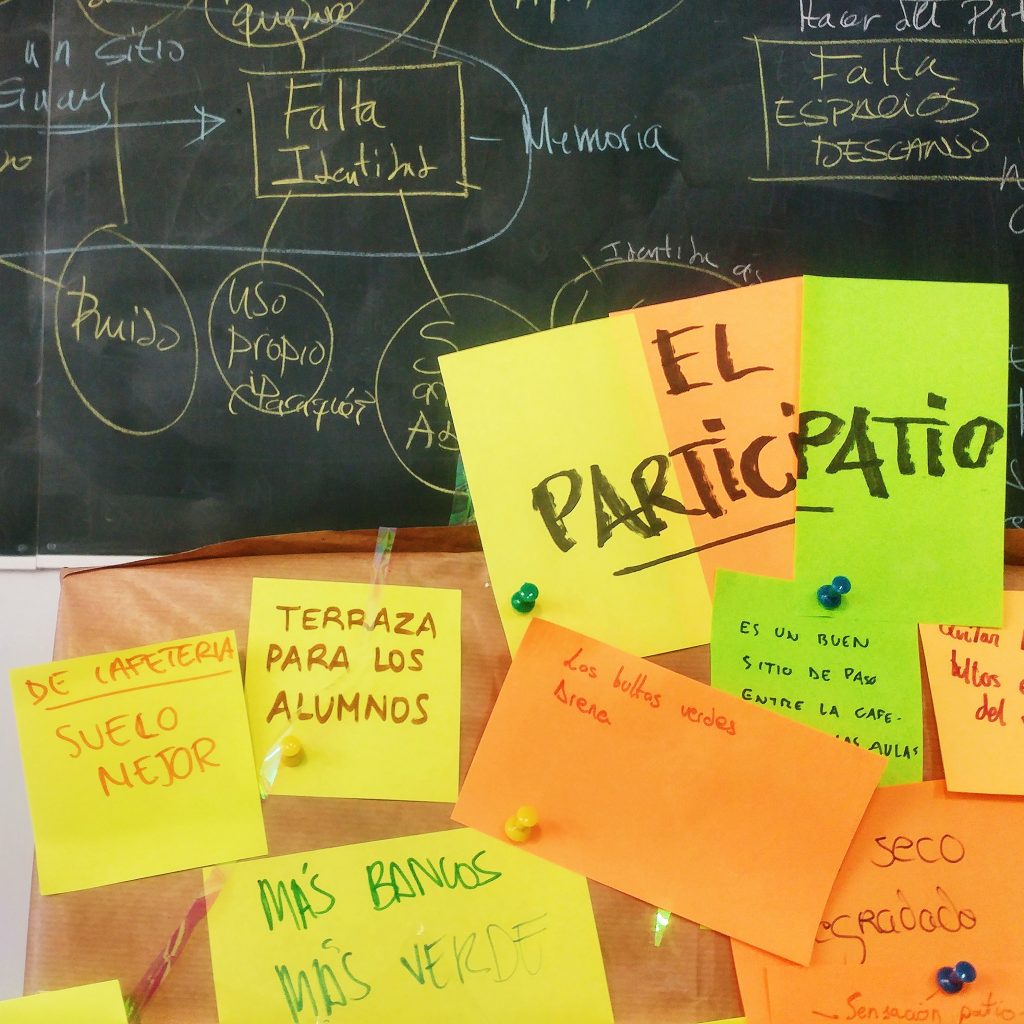 un sitio
Guay
Falta
Identidad
Memoria
Hacer del
Falta
ESPACIOS
DESCANSO
Ruido
Uso
propio
Identidad
EL
PARTICIPATIO
DE CAFETERIA
SUELO
MEJOR
TERRAZA
PARA LOS
ALUMNOS
Los bultos verdes
Arena
ES UN BUEN
SITIO DE PASO
ENTRE LA CAFE-
LAS AULAS
Quitar
bultos
del
MÁS BANCOS
MÁS VERDE
SECO
Sensación patio